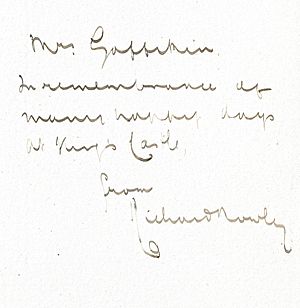 Mrs Gaffikin,
In remembrance of
many happy days
at King's Castle,
from
Richard Rowley